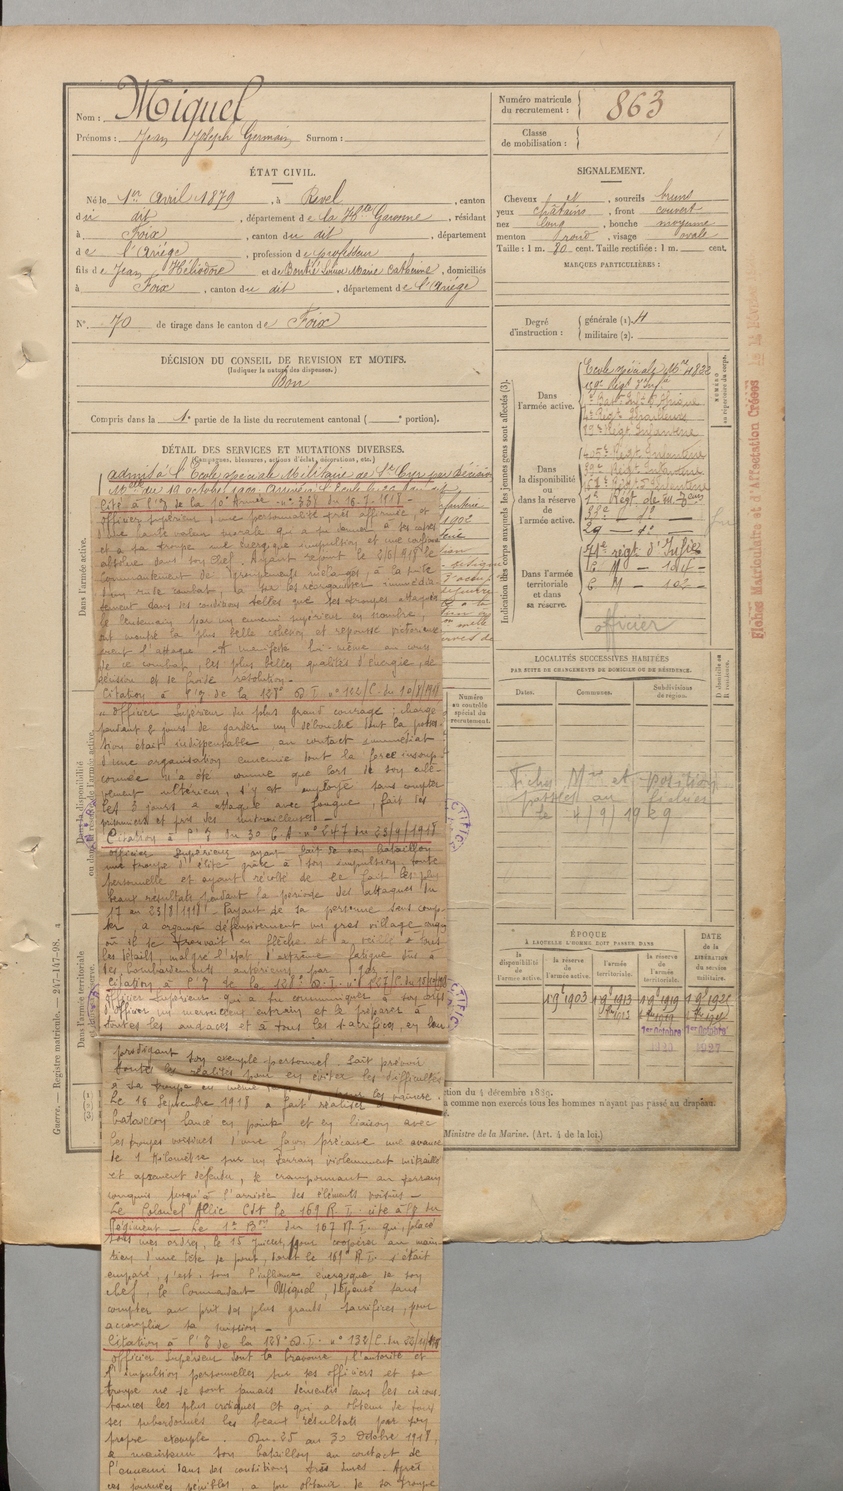 Nom : Miquel
Prénoms : Jean Joseph Germain Surnom :
Numéro matricule du recrutement : 863
Classe de mobilisation :
ÉTAT CIVIL.
Né le 1er Avril 1879, à Revel, canton
du dit, département de la Hte Garonne, résidant
à Foix, canton du dit, département
de l'Ariège, profession de professeur
fils de Jean Héliodore et de Louise Marie Catherine, domiciliés
à Foix, canton du dit, département de l'Ariège
N° 70 de tirage dans le canton de Foix
SIGNALEMENT.
Cheveux, sourcils bruns
yeux châtains, front couvert
nez long, bouche moyenne
menton rond, visage ovale
Taille : 1 m. 80 cent. Taille rectifiée : 1 m. cent.
MARQUES PARTICULIÈRES :
Degré d'instruction : générale (1). 4
militaire (2).
DÉCISION DU CONSEIL DE REVISION ET MOTIFS.
(Indiquer la nature des dispenses.)
Bon
Compris dans la 1e partie de la liste du recrutement cantonal ( e portion).
DÉTAIL DES SERVICES ET MUTATIONS DIVERSES.
(Campagnes, blessures, actions d'éclat, décorations, etc.)
admis à l'Ecole spéciale Militaire de St Cyr par décision
Mlle du 10 octobre 1900
Cité à l'O de la 10e Armée n° 331 du 16-7-1918
officier supérieur, une personnalité très affirmée, et
d'une haute valeur morale qui a su donner à ses cadres
et à sa troupe une énergique impulsion et une confiance
absolue dans son chef. Ayant reçu le 2/6/918 le
commandement de groupements mélangés, à la suite
d'un rude combat, a su les réorganiser immédia-
tement dans des conditions telles que ses troupes attaquées
le lendemain par un ennemi supérieur en nombre,
ont montré la plus belle cohésion et repoussé victorieuse-
ment l'attaque. A manifesté lui-même au cours
de ce combat, les plus belles qualités d'énergie, de
décision et de froide résolution.
Citation à l'O de la 128e D.I. n° 122/C. du 10/8/1918
officier supérieur du plus grand courage ; chargé
pendant 2 jours de garder un débouché dont la posses-
sion était indispensable, au contact immédiat
d'une organisation ennemie dont la force insoup-
connée n'a été connue que lors de son enlè-
vement ultérieur, s'y est employé sans compter
Les 3 jours a attaqué avec fougue, fait des
prisonniers et pris des mitrailleuses.
Citation à l'O du 30 C.A. n° 247 du 23/9/1918
officier supérieur ayant fait de son bataillon
une troupe d'élite grâce à son impulsion toute
personnelle et ayant récolté de ce fait les plus
beaux résultats pendant la période des attaques du
17 au 23/8/1918. Payant de sa personne sans comp-
ter, a organisé défensivement un gros village
où il se trouvait en flèche et a veillé à tous
les détails, malgré l'état d'extrême fatigue dû à
des bombardements antérieurs par gaz.
Citation à l'O de la 128e D.I. n° 127/C. du 18/10/1918
officier supérieur qui a su communiquer à son corps
d'officiers un merveilleux entrain et le préparer à
toutes les audaces et à tous les sacrifices, en leur
prodiguant son exemple personnel. Sait prévoir
toutes les réalités pour en éviter les difficultés
à sa troupe en même
Le 16 Septembre 1918 a fait réaliser
bataillon lancé en pointe et en liaison avec
les troupes voisines d'une façon précaire une avance
de 1 kilomètre sur un terrain violemment mitraillé
et âprement défendu, se cramponnant au terrain
conquis jusqu'à l'arrivée des éléments voisins.
Le Colonel Allié Cdt le 169 R.I. cite à l'O du
Régiment. Le 1er Bon du 167 R.I. qui, placé
sous mes ordres, le 15 juillet, pour coopérer au main-
tien d'une tête de pont, dont le 169e R.I. s'était
emparé, s'est, sous l'influence énergique de son
chef, le Commandant Miquel, dépensé sans
compter au prix des plus grands sacrifices, pour
accomplir sa mission.
Citation à l'O de la 128e D.I. n° 132/C. du
officier supérieur dont la bravoure, l'autorité et
l'impulsion personnelles sur ses officiers et sa
troupe ne se sont jamais démenties dans les circons-
tances les plus critiques et qui a obtenu de tous
ses subordonnés les beaux résultats par son
propre exemple. Du 25 au 30 Octobre 1918,
a maintenu son bataillon au contact de
l'ennemi dans des conditions très dures. Après
ces journées pénibles, a pu obtenir de sa troupe
Dans l'armée active.
Dans la disponibilité ou dans la réserve de l'armée active.
Dans l'armée territoriale et dans sa réserve.
Guerre. — Registre matricule. — 247-147-98.
Indication des corps auxquels les jeunes gens sont affectés (3).
NUMÉRO au répertoire du corps.
Dans l'armée active.
Ecole spéciale Mre 4822
139e Régt d'Infie
4e Régt Tirailleurs
19e Régt Infanterie
Dans la disponibilité ou dans la réserve de l'armée active.
Régt Infanterie
Régt Infanterie
Régt Infanterie
1er Régt de Zouaves
88e — do
29 — do
Dans l'armée territoriale et dans sa réserve.
71e régt d'Infie
officier
Numéro au contrôle spécial du recrutement.
LOCALITÉS SUCCESSIVES HABITÉES
PAR SUITE DE CHANGEMENTS DE DOMICILE OU DE RÉSIDENCE.
Dates. Communes. Subdivisions de région. D domicile ou R résidence.
Fiches Mle et position
passées au fichier
le 4/9/1929
Fiches Matriculaire et d'Affectation Créées le
ÉPOQUE
À LAQUELLE L'HOMME DOIT PASSER DANS
la disponibilité de l'armée active. la réserve de l'armée active. l'armée territoriale. la réserve de l'armée territoriale.
DATE de la LIBÉRATION du service militaire.
1 9bre 1903 1 9bre 1913 1 9bre 1919
1er Octobre 1er Octobre
1927
ction du 4 décembre 1889.
a comme non exercés tous les hommes n'ayant pas passé au drapeau.
Ministre de la Marine. (Art. 4 de la loi.)